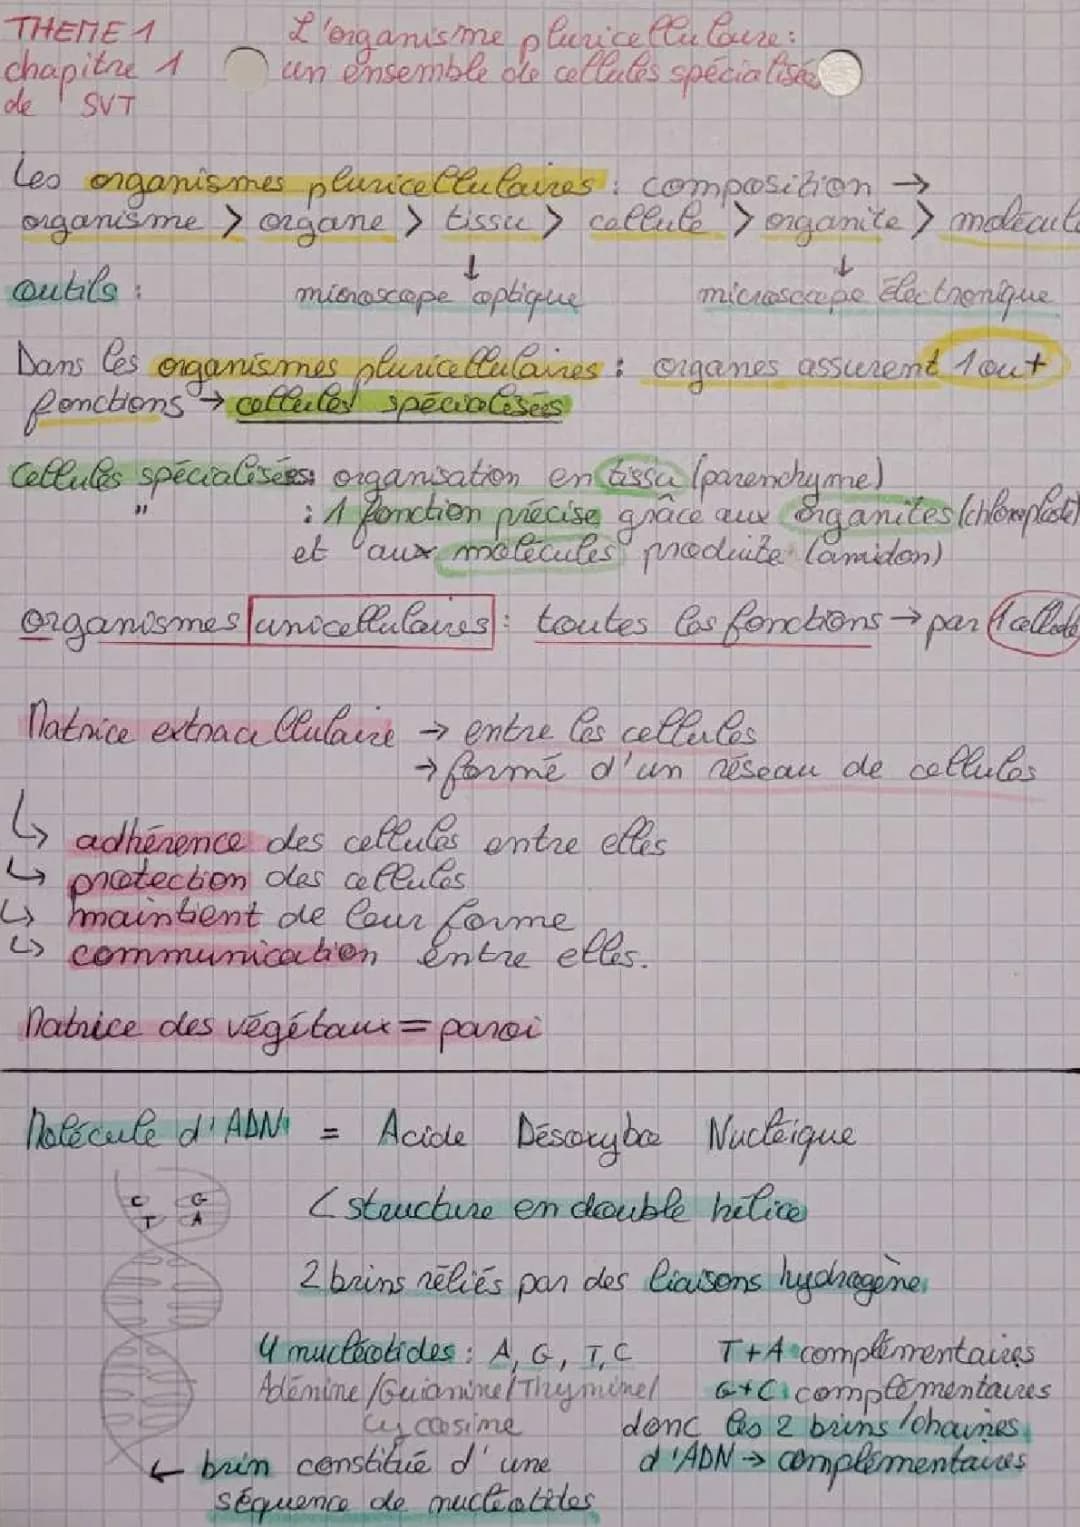 THEME 1
chapitre 1
de SVT
L'organisme pluricellulaire:
un ensemble de cellules spécialisées
Les organismes pluricellulaires : composition →
organisme > organe > tissu > cellule > organite > molécule
↓ ↓
outils : microscope optique microscope électronique
Dans les organismes pluricellulaires : organes assurent 1 ou +
fonctions → cellules spécialisées
Cellules spécialisées: organisation en tissu (parenchyme)
" : 1 fonction précise grâce aux organites (chloroplaste)
et aux molécules produite (amidon)
organismes unicellulaires : toutes les fonctions → par 1 cellule
Matrice extracellulaire → entre les cellules
→ formé d'un réseau de cellules
↳ adhérence des cellules entre elles
↳ protection des cellules
↳ maintient de leur forme
↳ communication entre elles.
Matrice des végétaux = paroi
Molécule d'ADN = Acide Désoxyboe Nucléique
C G
T A
( structure en double hélice
2 brins réliés par des liaisons hydrogène
4 nucléotides : A, G, T, C
Adénine/Guianine/Thymine/
Cycosine
T+A complémentaires
G+C complémentaires
donc les 2 brins/chaines
d'ADN → complémentaires
← brin constitué d'une
séquence de nucléotides